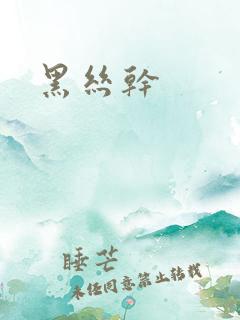 黑絲幹
睡芒
未经同意禁止转载